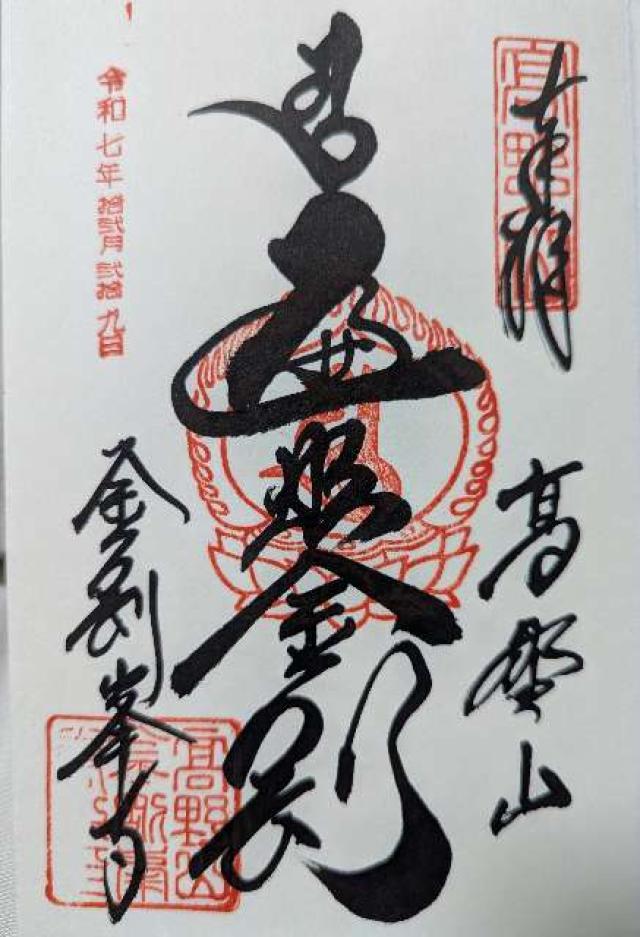 奉拝
高野山
遍照金剛
令和七年拾弐月弐拾九日
金剛峯寺
高野山